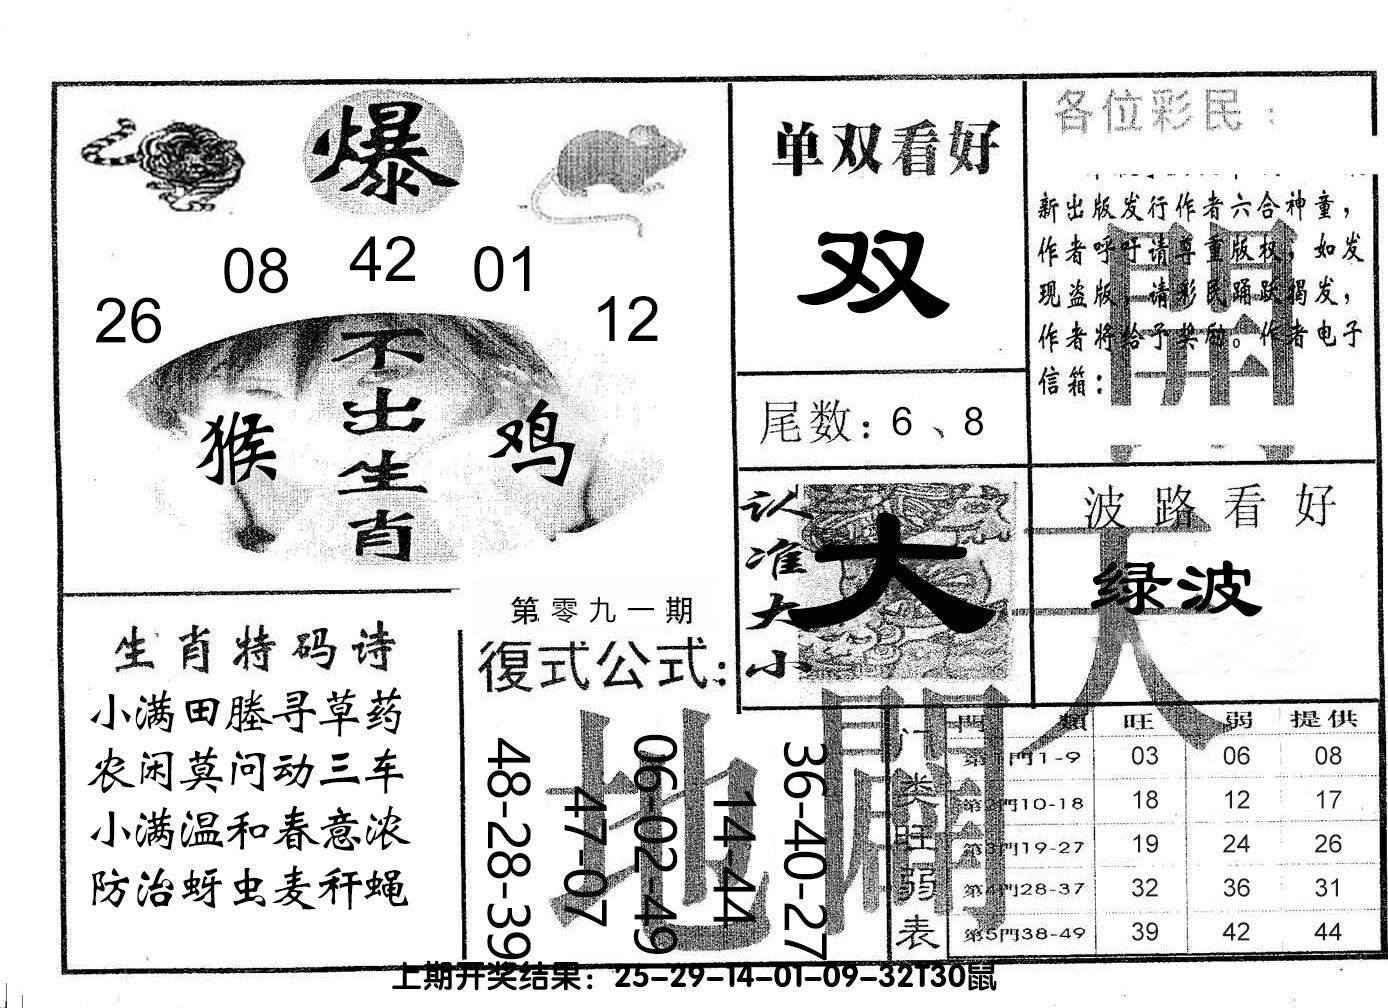 爆
26 08 42 01 12
不出生肖
猴 鸡
单双看好
双
尾数：6、8
各位彩民：
新出版发行作者六合神童，
作者呼吁请尊重版权，如发
现盗版，请彩民踊跃揭发，
作者将给予奖励。作者电子
信箱：
認准大小
大
波路看好
绿波
生肖特码诗
小满田塍寻草药
农闲莫问动三车
小满温和春意浓
防治蚜虫麦秆蝇
第零九一期
復式公式：
48-28-39
47-07
06-02-49
14-44
36-40-27
天
地
門类旺弱表
門類 旺 弱 提供
第1門1-9 03 06 08
第2門10-18 18 12 17
第3門19-27 19 24 26
第4門28-37 32 36 31
第5門38-49 39 42 44
上期开奖结果：25-29-14-01-09-32T30鼠